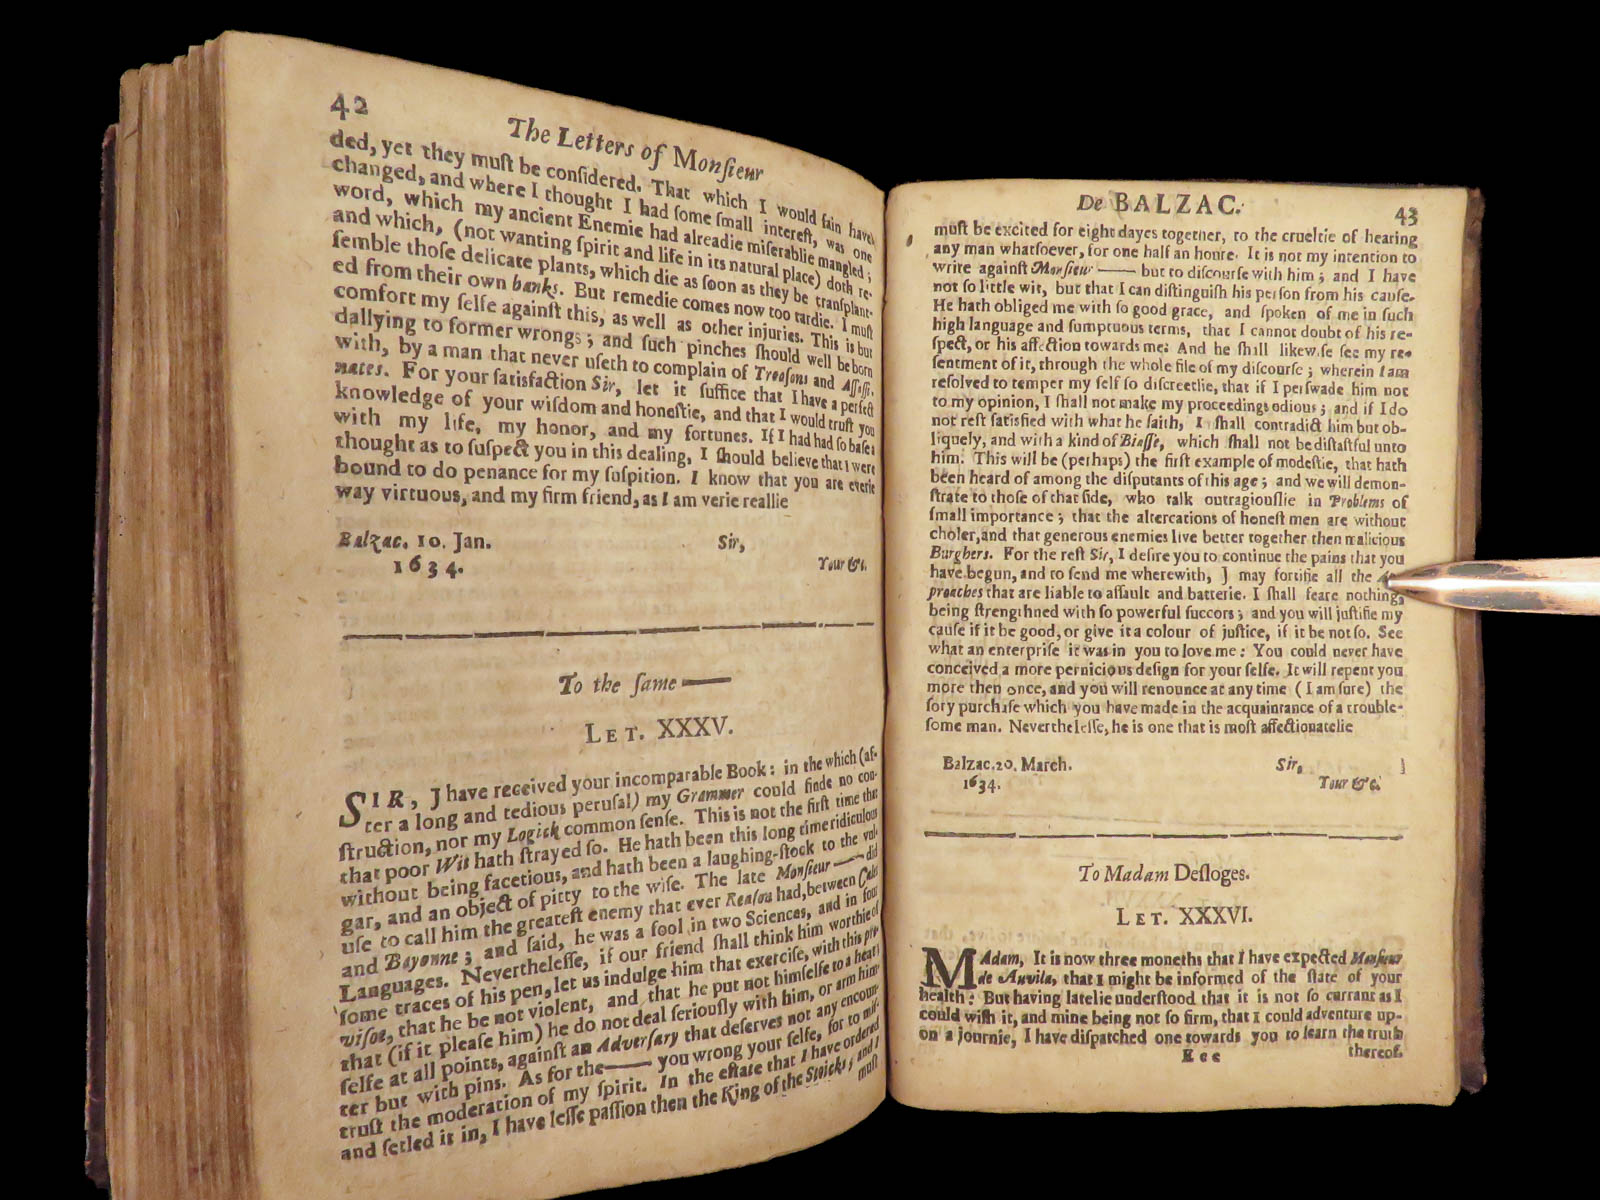 42
The Letters of Monſieur
ded, yet they muſt be conſidered. That which I would fain have
changed, and where I thought I had ſome ſmall intereſt, was one
word, which my ancient Enemie had alreadie miſerablie mangled;
and which, (not wanting ſpirit and life in its natural place) doth re-
ſemble thoſe delicate plants, which die as ſoon as they be tranſplant-
ed from their own banks. But remedie comes now too tardie. I muſt
comfort my ſelfe againſt this, as well as other injuries. This is but
dallying to former wrongs; and ſuch pinches ſhould well be born
with, by a man that never uſeth to complain of Treaſons and Aſſaſſi-
nates. For your ſatisfaction Sir, let it ſuffice that I have a perfect
knowledge of your wiſdom and honeſtie, and that I would truſt you
with my life, my honor, and my fortunes. If I had had ſo baſe a
thought as to ſuſpect you in this dealing, I ſhould believe that I were
bound to do penance for my ſuſpition. I know that you are everie
way virtuous, and my firm friend, as I am verie reallie
Balzac. 10. Jan.
1634.
Sir,
Your &c.
To the ſame ——
LET. XXXV.
SIR, J have received your incomparable Book: in the which (af-
ter a long and tedious peruſal) my Grammer could finde no con-
ſtruction, nor my Logick common ſenſe. This is not the firſt time that
that poor Wit hath ſtrayed ſo. He hath been this long time ridiculous
without being facetious, and hath been a laughing-ſtock to the vul-
gar, and an object of pitty to the wiſe. The late Monſieur —— did
uſe to call him the greateſt enemy that ever Reaſon had, between Cales
and Bayonne; and ſaid, he was a fool in two Sciences, and in four
Languages. Nevertheleſſe, if our friend ſhall think him worthie of
ſome traces of his pen, let us indulge him that exerciſe, with this pro-
viſoe, that he be not violent, and that he put not himſelfe to a heat;
that (if it pleaſe him) he do not deal ſeriouſly with him, or arm him-
ſelfe at all points, againſt an Adverſary that deſerves not any encoun-
ter but with pins. As for the —— you wrong your ſelfe, ſor to miſ-
truſt the moderation of my ſpirit. In the eſtate that I have ordered
and ſetled it in, I have leſſe paſſion then the King of the Stoicks; and I
muſt
De BALZAC.
43
muſt be excited for eight dayes together, to the crueltie of hearing
any man whatſoever, for one half an houre. It is not my intention to
write againſt Monſieur —— but to diſcourſe with him; and I have
not ſo little wit, but that I can diſtinguiſh his perſon from his cauſe.
He hath obliged me with ſo good grace, and ſpoken of me in ſuch
high language and ſumptuous terms, that I cannot doubt of his re-
ſpect, or his affection towards me: And he ſhall likewiſe ſee my re-
ſentment of it, through the whole file of my diſcourſe; wherein I am
reſolved to temper my ſelf ſo diſcreetlie, that if I perſwade him not
to my opinion, I ſhall not make my proceedings odious; and if I do
not reſt ſatisfied with what he ſaith, I ſhall contradict him but ob-
liquely, and with a kind of Biaſſe, which ſhall not be diſtaſtful unto
him. This will be (perhaps) the firſt example of modeſtie, that hath
been heard of among the diſputants of this age; and we will demon-
ſtrate to thoſe of that ſide, who talk outragiouſlie in Problems of
ſmall importance; that the altercations of honeſt men are without
choler, and that generous enemies live better together then malicious
Burghers. For the reſt Sir, I deſire you to continue the pains that you
have begun, and to ſend me wherewith, J may fortifie all the
proaches that are liable to aſſault and batterie. I ſhall feare nothing,
being ſtrengthned with ſo powerful ſuccors; and you will juſtifie my
cauſe if it be good, or give it a colour of juſtice, if it be not ſo. See
what an enterpriſe it was in you to love me: You could never have
conceived a more pernicious deſign for your ſelfe. It will repent you
more then once, and you will renounce at any time (I am ſure) the
ſory purchaſe which you have made in the acquaintance of a trouble-
ſome man. Nevertheleſſe, he is one that is moſt affectionatelie
Balzac. 20. March.
1634.
Sir,
Your &c.
To Madam Deſloges.
LET. XXXVI.
MAdam, It is now three moneths that I have expected Monſieur
de Auvila, that I might be informed of the ſtate of your
health: But having latelie underſtood that it is not ſo currant as I
could wiſh it, and mine being not ſo firm, that I could adventure up-
on a journie, I have diſpatched one towards you to learn the truth
Eee
thereof.